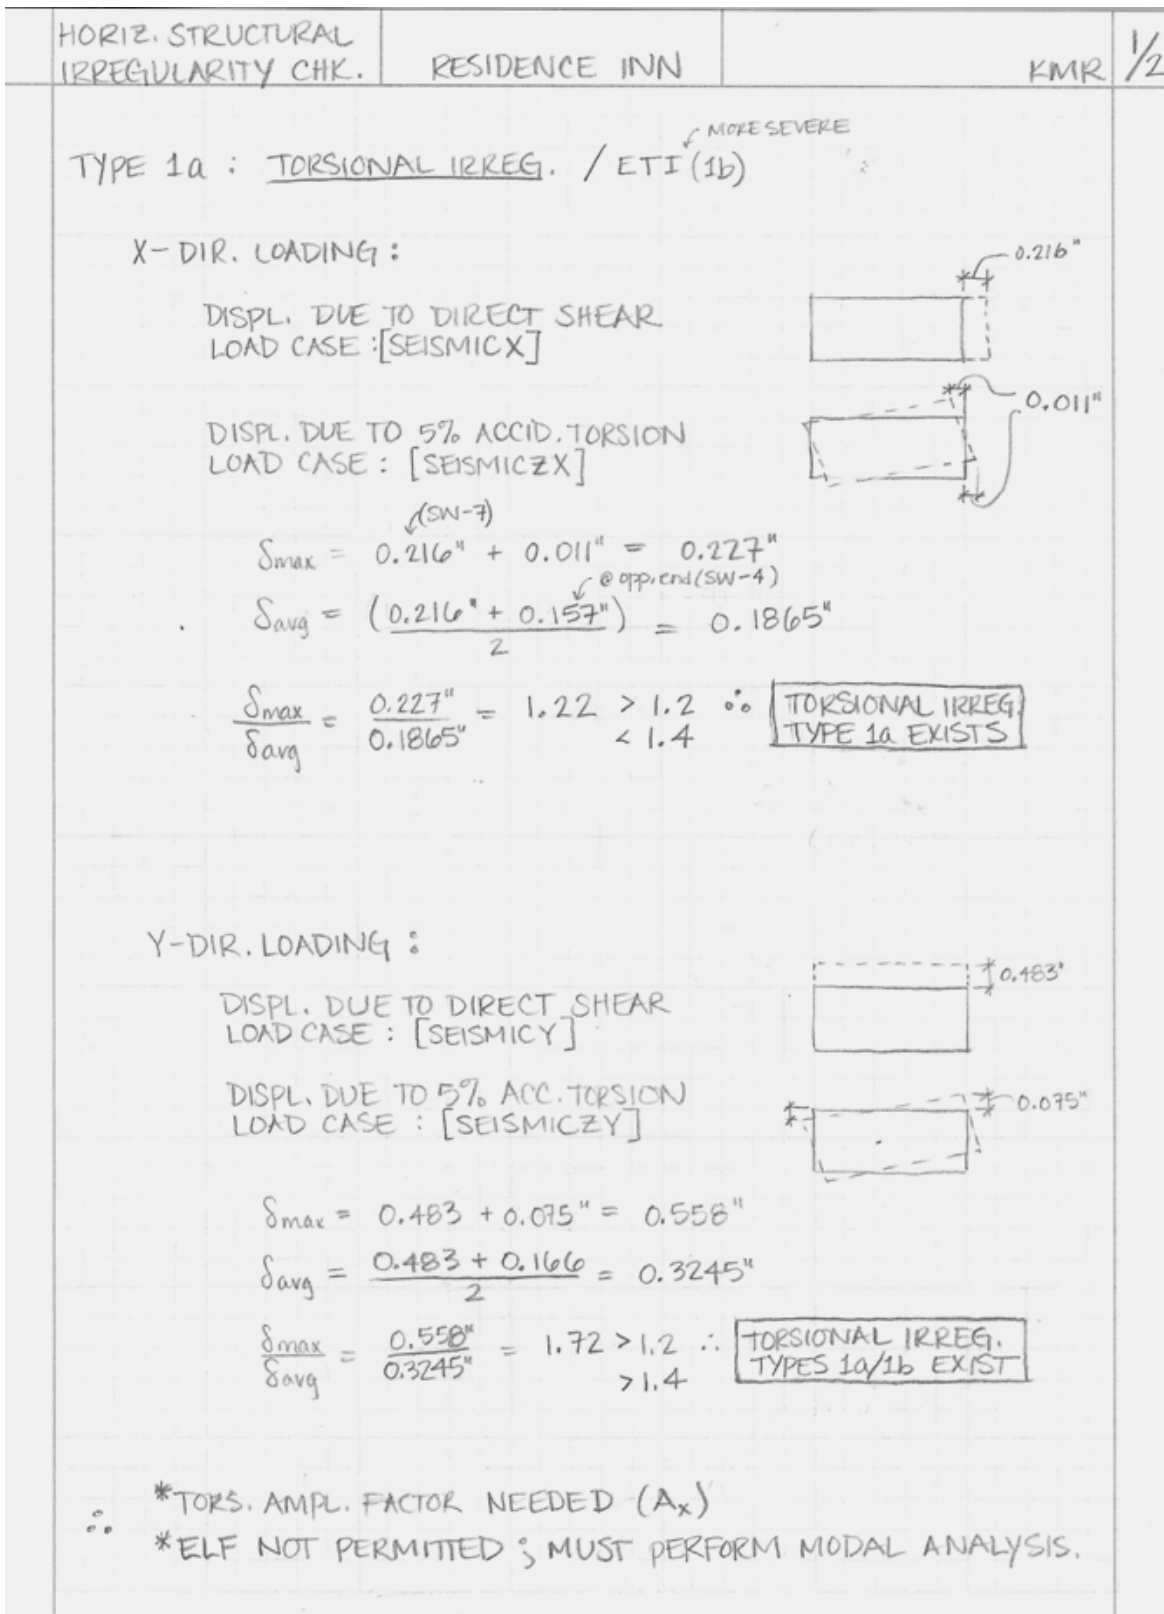 HORIZ. STRUCTURAL
IRREGULARITY CHK.
RESIDENCE INN
KMR
1/2
MORE SEVERE
TYPE 1a : TORSIONAL IRREG. / ETI (1b)
X-DIR. LOADING :
0.216"
DISPL. DUE TO DIRECT SHEAR
LOAD CASE :[SEISMICX]
0.011"
DISPL. DUE TO 5% ACCID. TORSION
LOAD CASE : [SEISMICZX]
(SW-7)
δmax = 0.216" + 0.011" = 0.227"
@ opp. end (SW-4)
δavg = (0.216" + 0.157") / 2 = 0.1865"
δmax / δavg = 0.227" / 0.1865" = 1.22 > 1.2 ∴ TORSIONAL IRREG.
< 1.4 TYPE 1a EXISTS
Y-DIR. LOADING :
0.483"
DISPL. DUE TO DIRECT SHEAR
LOAD CASE : [SEISMICY]
DISPL. DUE TO 5% ACC. TORSION
0.075"
LOAD CASE : [SEISMICZY]
δmax = 0.483 + 0.075" = 0.558"
δavg = 0.483 + 0.166 / 2 = 0.3245"
δmax / δavg = 0.558" / 0.3245" = 1.72 > 1.2 ∴ TORSIONAL IRREG.
> 1.4 TYPES 1a/1b EXIST
∴ *TORS. AMPL. FACTOR NEEDED (Ax)
*ELF NOT PERMITTED ; MUST PERFORM MODAL ANALYSIS.